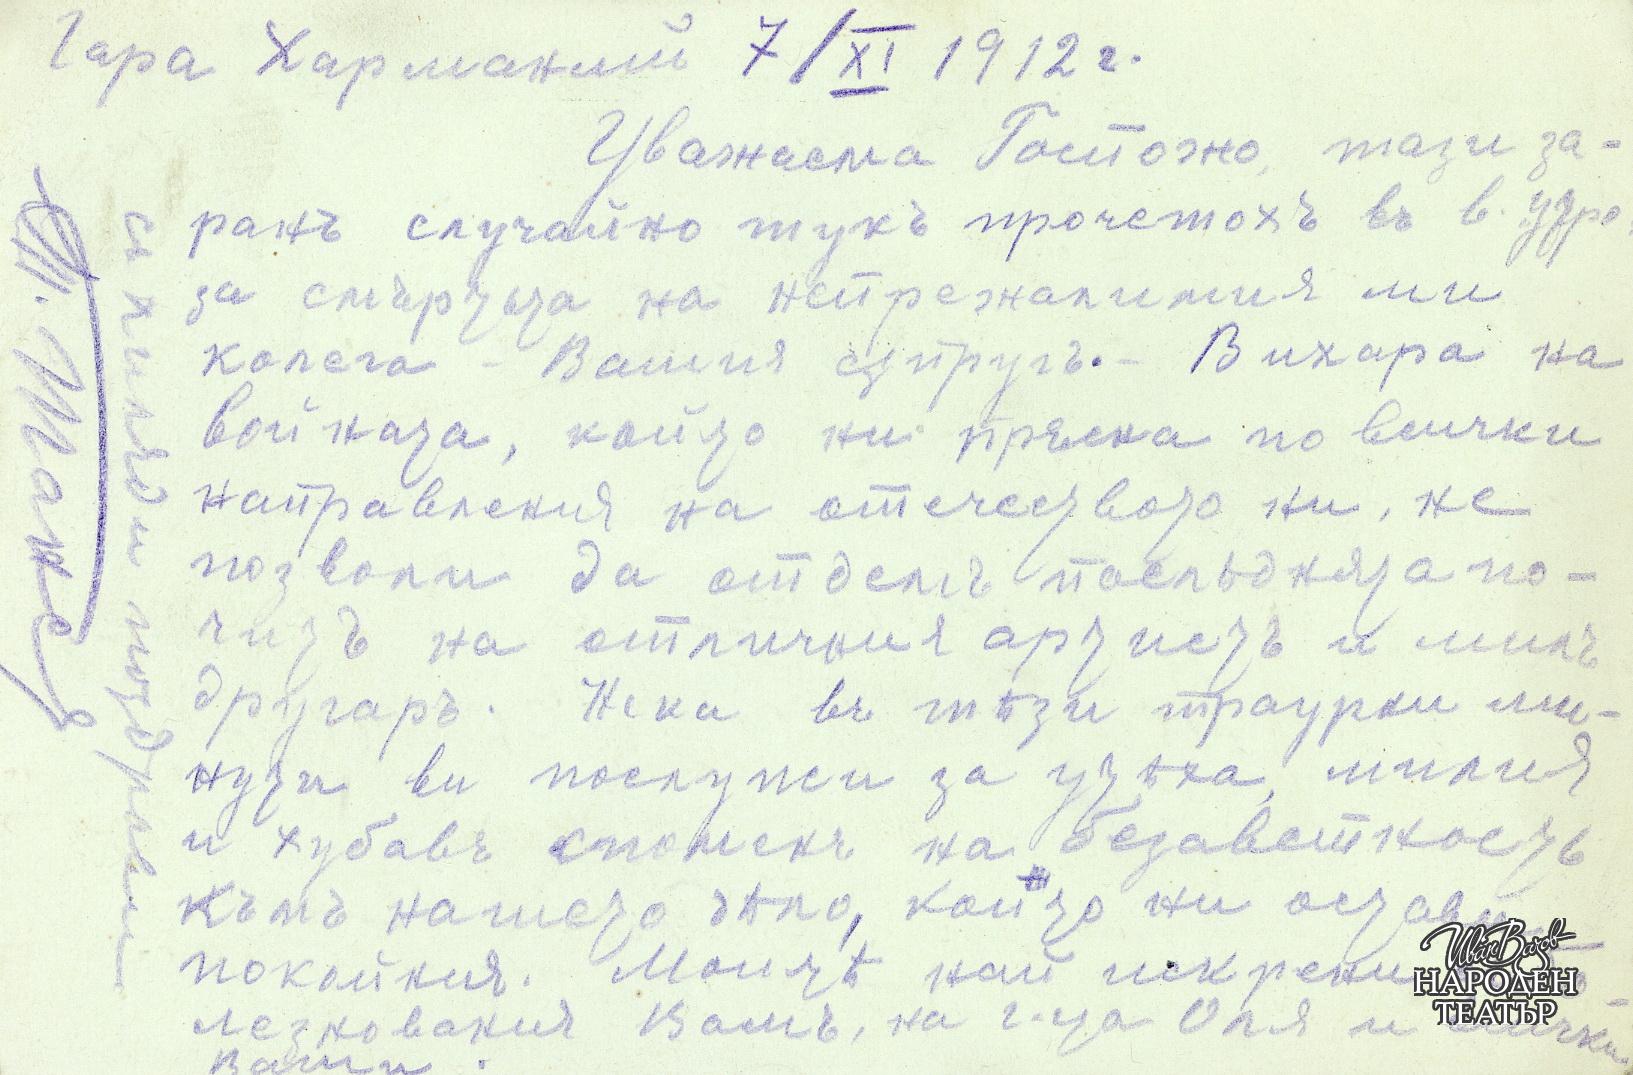 Гара Харманлий 7/XI 1912 г.
Уважаема Госпожо, тази за-
ранъ случайно тукъ прочетохъ въ в. Утро
за смъртьта на непрежалимия ми
колега - Вашия съпругъ. - Вихара на
войната, който ни пръсна по всички
направления на отечеството ни, не
позволи да отдемъ последнята по-
читъ на отличния артистъ и милъ
другарь. Нека въ тѣзи траурни ми-
нути ви послужи за утѣха, милия
и хубавъ споменъ на беззаветность
къмъ нашето дѣло, който ни остави
покойния. Моитѣ най искрени
лезнования Вамъ, на г-ца Оля и всички
Ваши.
съ хиляди поздрави